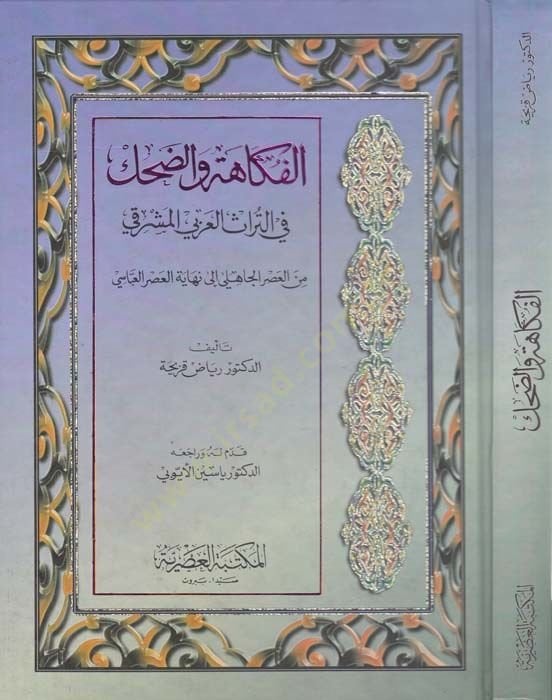 الفكاهة والضحك
في التراث العربي المشرقي
من العصر الجاهلي إلى نهاية العصر العباسي
تأليف
الدكتور رياض قزيحة
قدم له وراجعه
الدكتور ياسين الأيوبي
المكتبة العصرية
صيدا - بيروت
الدكتور رياض قزيحة
الفكاهة والضحك
المكتبة العصرية